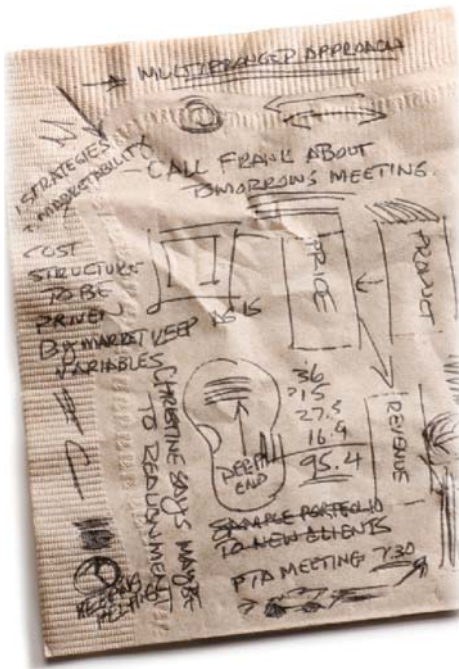 MULTIPRONGED APPROACH
STRATEGIES
+ MARKETABILITY
- CALL FRANK ABOUT
TOMORROWS MEETING.
COST
STRUCTURE
TO BE
DRIVEN
BY MARKET
VARIABLES
KEEP
AS IS
PRICE
PRODUCT
REVENUE
CHRISTINE SAYS MAYBE
TO REALIGNMENT
DEEP
END
36
15
27.5
16.9
95.4
SAMPLE PORTFOLIO
TO NEW CLIENTS
PTA MEETING 7:30
HELPING